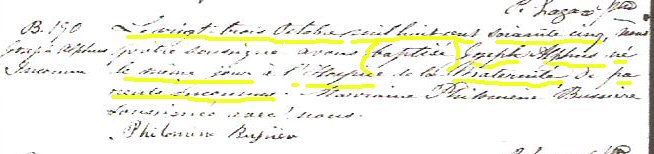 B. 190
Joseph Alphse
Inconnu
Le vingt-trois Octobre mil huit cent soixante cinq, nous
prêtre soussigné avons baptisé Joseph Alphse né
le même jour à l'Hospice de la Maternité de pa
rents inconnus. Marraine Philomène Bussière
soussignée avec nous.
Philomene Bussiere